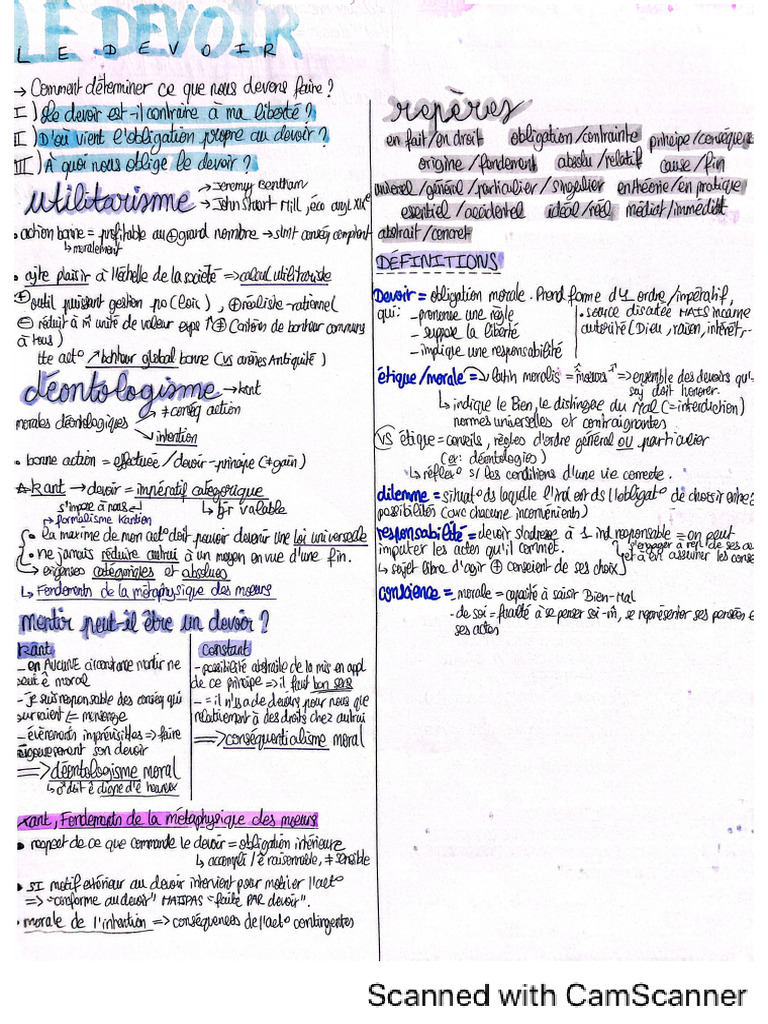 LE DEVOIR
LE DEVOIR
→ Comment déterminer ce que nous devons faire ?
I) Le devoir est-il contraire à ma liberté ?
II) D'où vient l'obligation propre au devoir ?
III) À quoi nous oblige le devoir ?
utilitarisme → Jeremy Bentham
→ John Stuart Mill, éco angl XIXe
• action bonne = profitable au ⊕ grand nombre → slmt conséq comptent
↳ moralement
• ajte plaisir à l'échelle de la société ⇒ calcul utilitariste
⊕ outil puissant gestion po (lois), ⊕ réaliste-rationnel
⊖ réduit à m̂ unité de valeur exps ≠ (Critères de bonheur communs
à tous)
tte act° ↗ bonheur global bonne (vs arènes Antiquité)
déontologisme → kant
morales déontologiques → ≠ conséq action
→ intention
• bonne action = effectuée / devoir-principe (≠ gain)
kant → devoir = impératif catégorique
s'impose à nous ↲ ↳ tjr valable
↳ formalisme kantien
• la maxime de mon act° doit pouvoir devenir une loi universelle
• ne jamais réduire autrui à un moyen en vue d'une fin.
↳ exigences catégoriques et absolues
↳ Fondements de la métaphysique des moeurs
Mentir peut-il être un devoir ?
kant
- en AUCUNE circonstance mentir ne
peut ê moral
- je suis responsable des conséq qui
surviennent /= mensonge
- évènements imprévisibles ⇒ faire
rigoureusement son devoir
⇒ déontologisme moral
↳ ° doit ê digne d'ê heureux
constant
- possibilité abstraite de la mis en appl
de ce principe ⇒ il faut bon sens
- = il n'y a de devoirs pour nous que
relativement à des droits chez autrui
⇒ conséquentialisme moral
Kant, Fondements de la métaphysique des moeurs
• respect de ce que commande le devoir = obligation intérieure
↳ accompli / ê raisonnable, ≠ sensible
• SI motif extérieur au devoir intervient pour motiver l'act°
⇒ "conforme au devoir" MAIS PAS "faite PAR devoir".
• morale de l'intention ⇒ conséquences de l'act° contingentes
repères
en fait/en droit obligation/contrainte principe/conséquence
origine/fondement absolu/relatif cause/fin
universel/général/particulier/singulier en théorie/en pratique
essentiel/accidentel idéal/réel médiat/immédiat
abstrait/concret
DÉFINITIONS
Devoir = obligation morale. Prend forme d'1 ordre/impératif,
qui : - prononce une règle
- suppose la liberté
- implique une responsabilité
• source discutée MAIS incarne
autorité (Dieu, raison, intérêt,..
étique/morale = latin moralis = "moeurs" ⇒ ensemble des devoirs qu'
° doit honorer.
↳ indique le Bien, le distingue du Mal (= interdiction)
normes universelles et contraignantes
VS étique = conseils, règles d'ordre général OU particulier
(ex : déontologies)
↳ réflex° s/ les conditions d'une vie correcte.
dilemme = situat° ds laquelle l'ind est ds l'obligat° de choisir entre 2
possibilités (avc chacune inconvénients)
responsabilité = devoir s'adresse à 1 ind responsable = on peut
imputer les actes qu'il commet.
↳ sujet libre d'agir ⊕ conscient de ses choix
s'engager à rép. de ses ac
et à en assumer les consé
conscience = - morale = capacité à saisir Bien-Mal
- de soi = faculté à se penser soi-m̂, se représenter ses pensées e
ses actes
Scanned with CamScanner